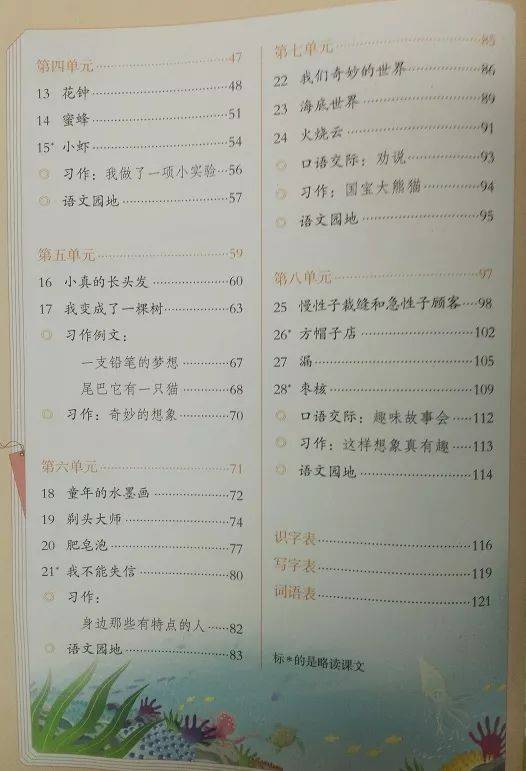 第四单元 47
13 花钟 48
14 蜜蜂 51
15* 小虾 54
◎ 习作：我做了一项小实验 56
◎ 语文园地 57
第五单元 59
16 小真的长头发 60
17 我变成了一棵树 63
◎ 习作例文：
一支铅笔的梦想 67
尾巴它有一只猫 68
◎ 习作：奇妙的想象 70
第六单元 71
18 童年的水墨画 72
19 剃头大师 74
20 肥皂泡 77
21* 我不能失信 80
◎ 习作：
身边那些有特点的人 82
◎ 语文园地 83
第七单元 85
22 我们奇妙的世界 86
23 海底世界 89
24 火烧云 91
◎ 口语交际：劝说 93
◎ 习作：国宝大熊猫 94
◎ 语文园地 95
第八单元 97
25 慢性子裁缝和急性子顾客 98
26* 方帽子店 102
27 漏 105
28* 枣核 109
◎ 口语交际：趣味故事会 112
◎ 习作：这样想象真有趣 113
◎ 语文园地 114
识字表 116
写字表 119
词语表 121
标*的是略读课文